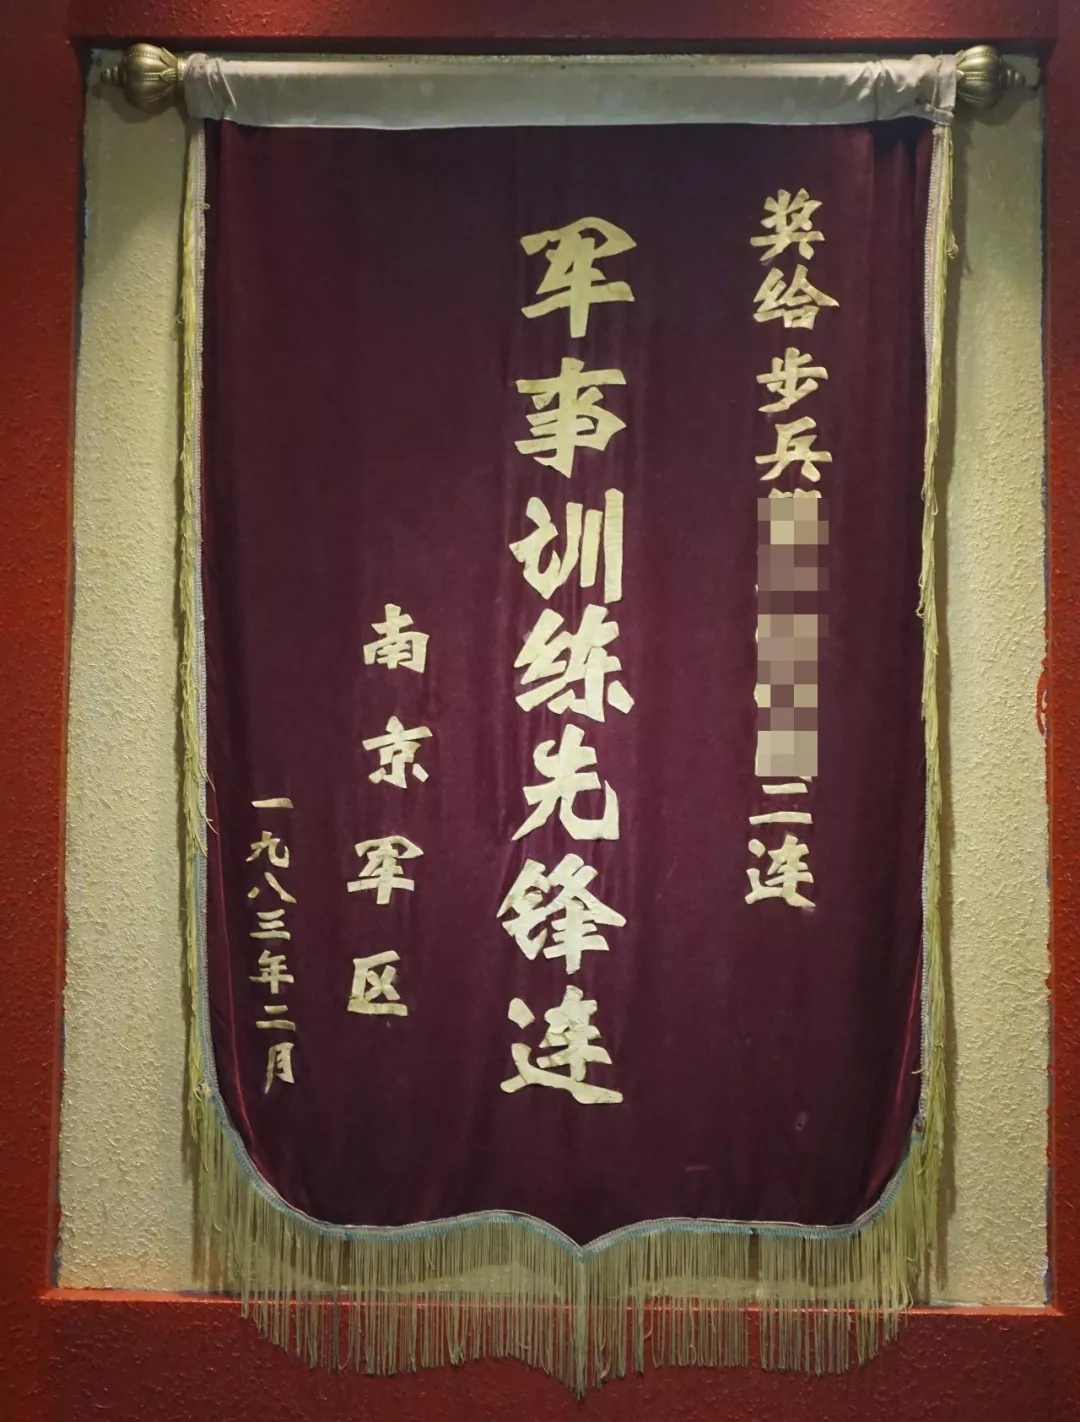 奖给步兵
二连
军事训练先锋连
南京军区
一九八三年二月